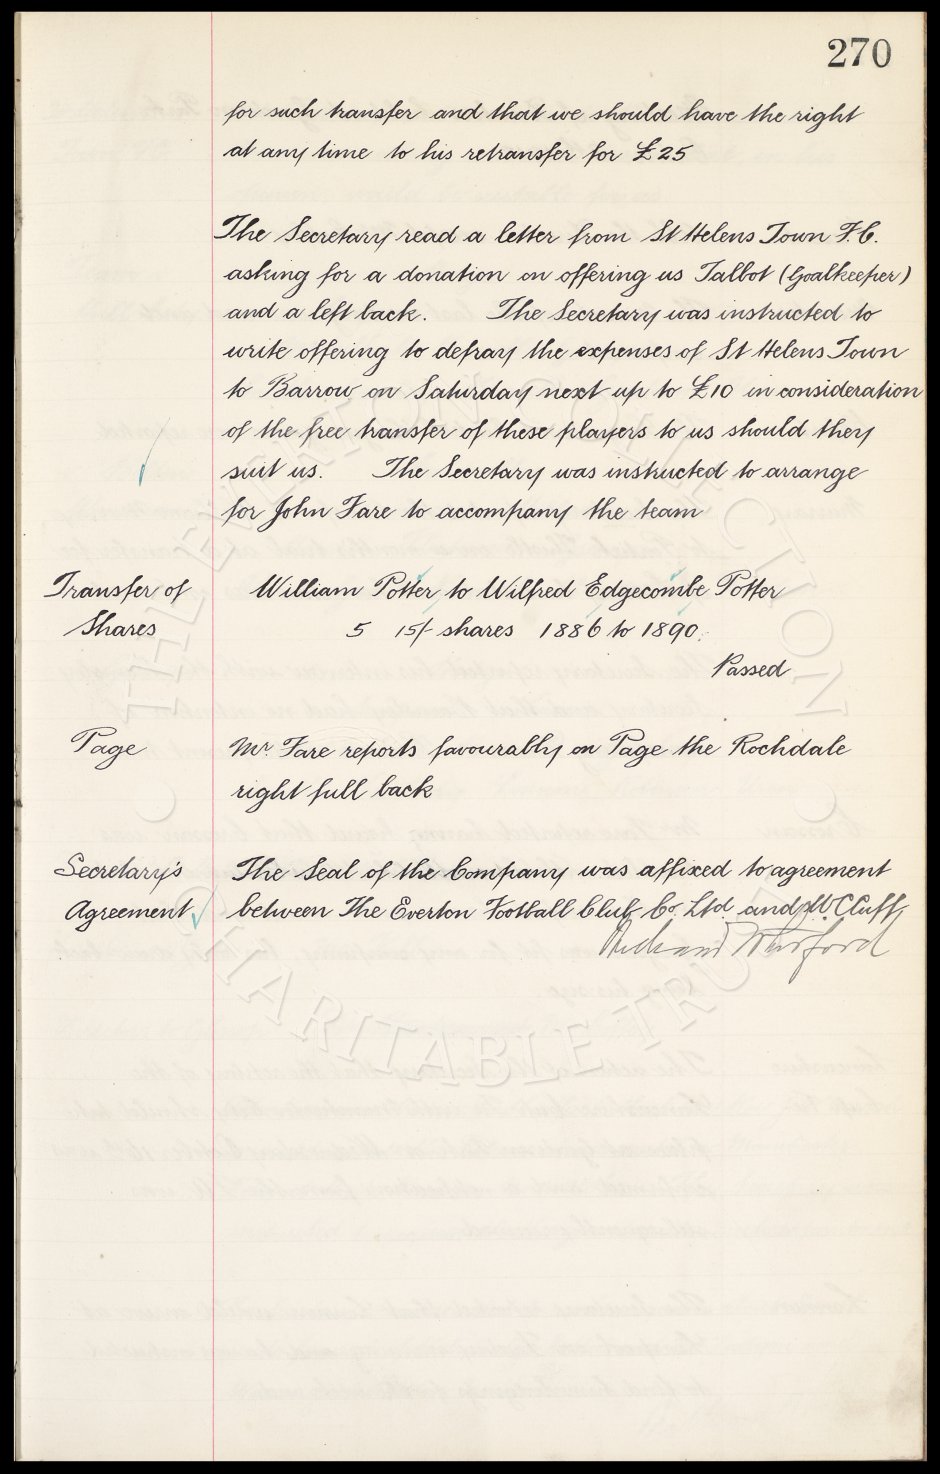 270
for such transfer and that we should have the right
at any time to his retransfer for £25
The Secretary read a letter from St Helens Town F.C.
asking for a donation on offering us Talbot (Goalkeeper)
and a left back. The Secretary was instructed to
write offering to defray the expenses of St Helens Town
to Barrow on Saturday next up to £10 in consideration
of the free transfer of these players to us should they
suit us. The Secretary was instructed to arrange
for John Fare to accompany the team
Transfer of William Potter to Wilfred Edgecombe Potter
Shares 5 15/- shares 1886 to 1890.
Passed
Page Mr. Fare reports favourably on Page the Rochdale
right full back
Secretary's The Seal of the Company was affixed to agreement
Agreement between The Everton Football Club Co. Ltd. and W. Cuff
THE EVERTON COLLECTION
CHARITABLE TRUST